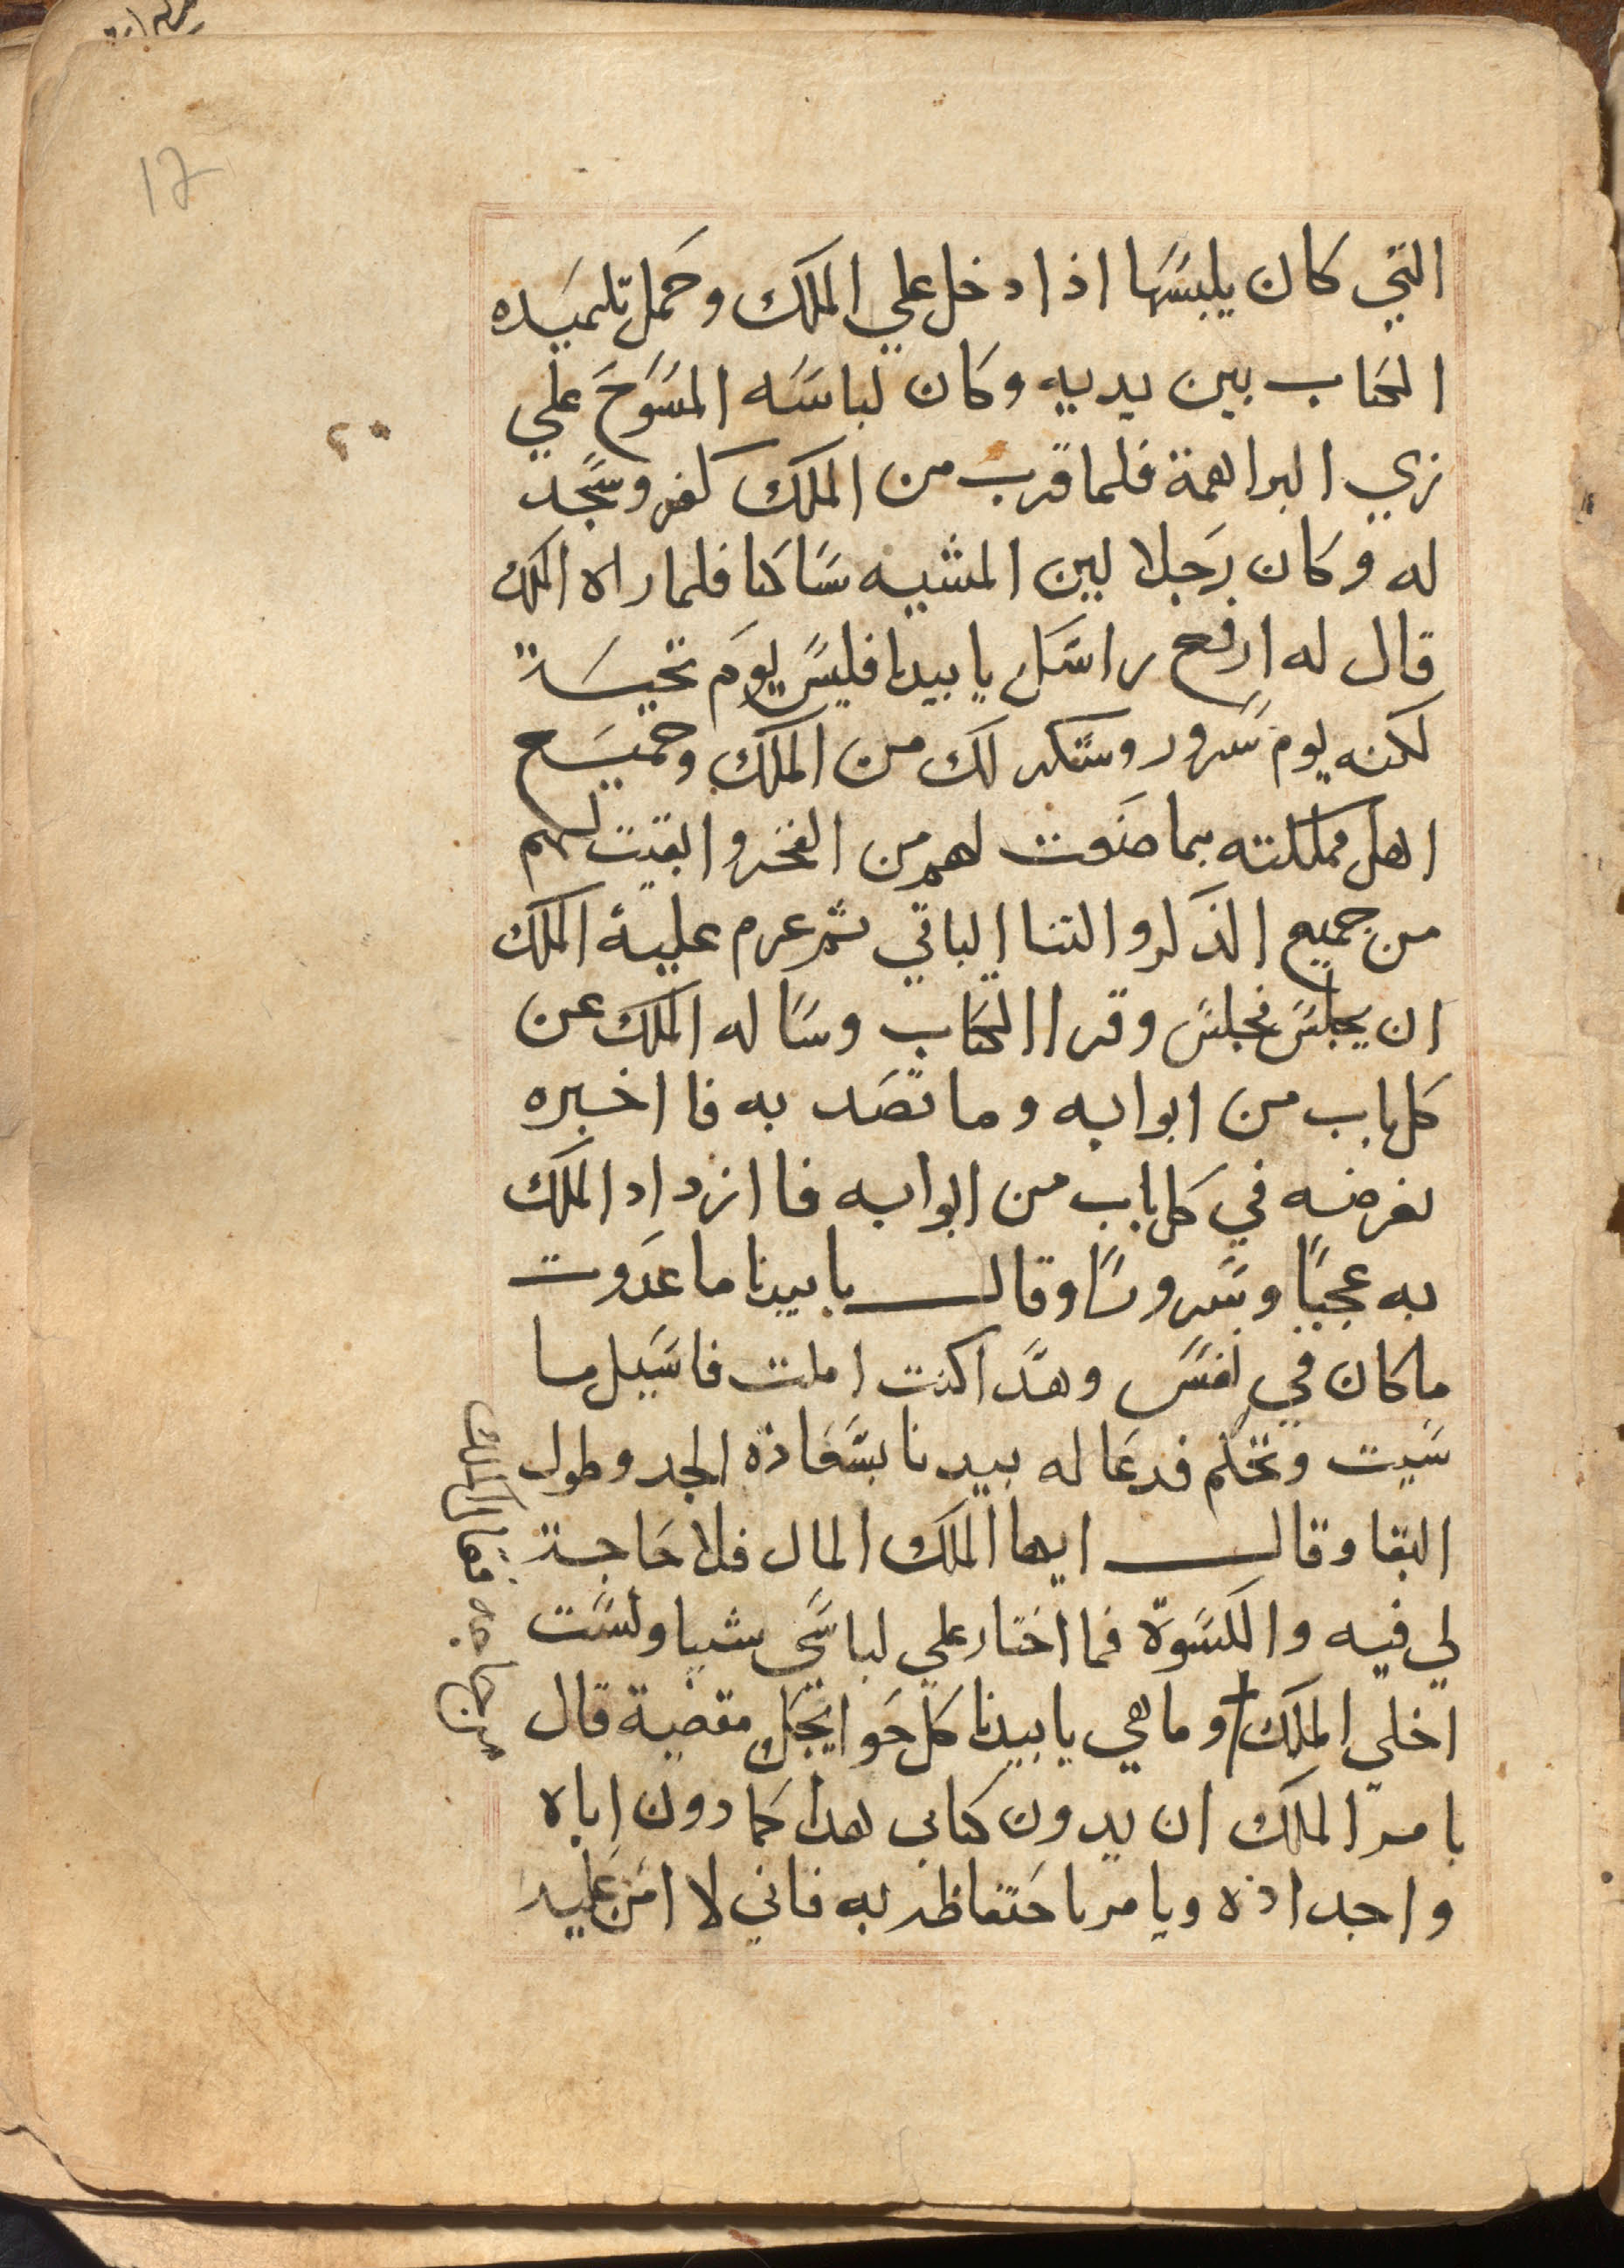 12
التي كان يلبسها اذا دخل علي الملك وحمل تلميده
الكتاب بين يديه وكان لباسه المسوح علي
زي البراهمة فلما قرب من الملك كفر وسجد
له وكان رجلا لين المشيه ساكنا فلما راه الملك
قال له ارفع راسك يا بيدنا فليس يوم تحيسة
لكنه يوم سرور وشكر لك من الملك وجميع
اهل مملكته بما صنعت لهم من الفخر وابقيت لهم
من جميع الذكر والتنا الباقي ثم عزم عليه الملك
ان يجلس فجلس وقرا الكتاب وساله الملك عن
كل باب من ابوابه وما قصد به فا اخبره
بغرضه في كل باب من ابوابه فا ازداد الملك
به عجبًا وسرورًا وقال يا بيدنا ما عدوت
ما كان في نفسي وهدا كنت املت فاسيل ما
شيت وتحكم فدعا له بيدنا بسعادة الجد وطول
البقا وقال ايها الملك المال فلا حاجة
لي فيه والكسوة فما اختار علي لباسي شيا ولست
اخلي الملك وما هي يا بيدنا كل حوايجك مقضية قال
يامر الملك ان يدون كتابي هدا كما دون اباه
واجداده ويامر باحتفاظه به فاني لا امن عليه
من حاجة فقال الملك